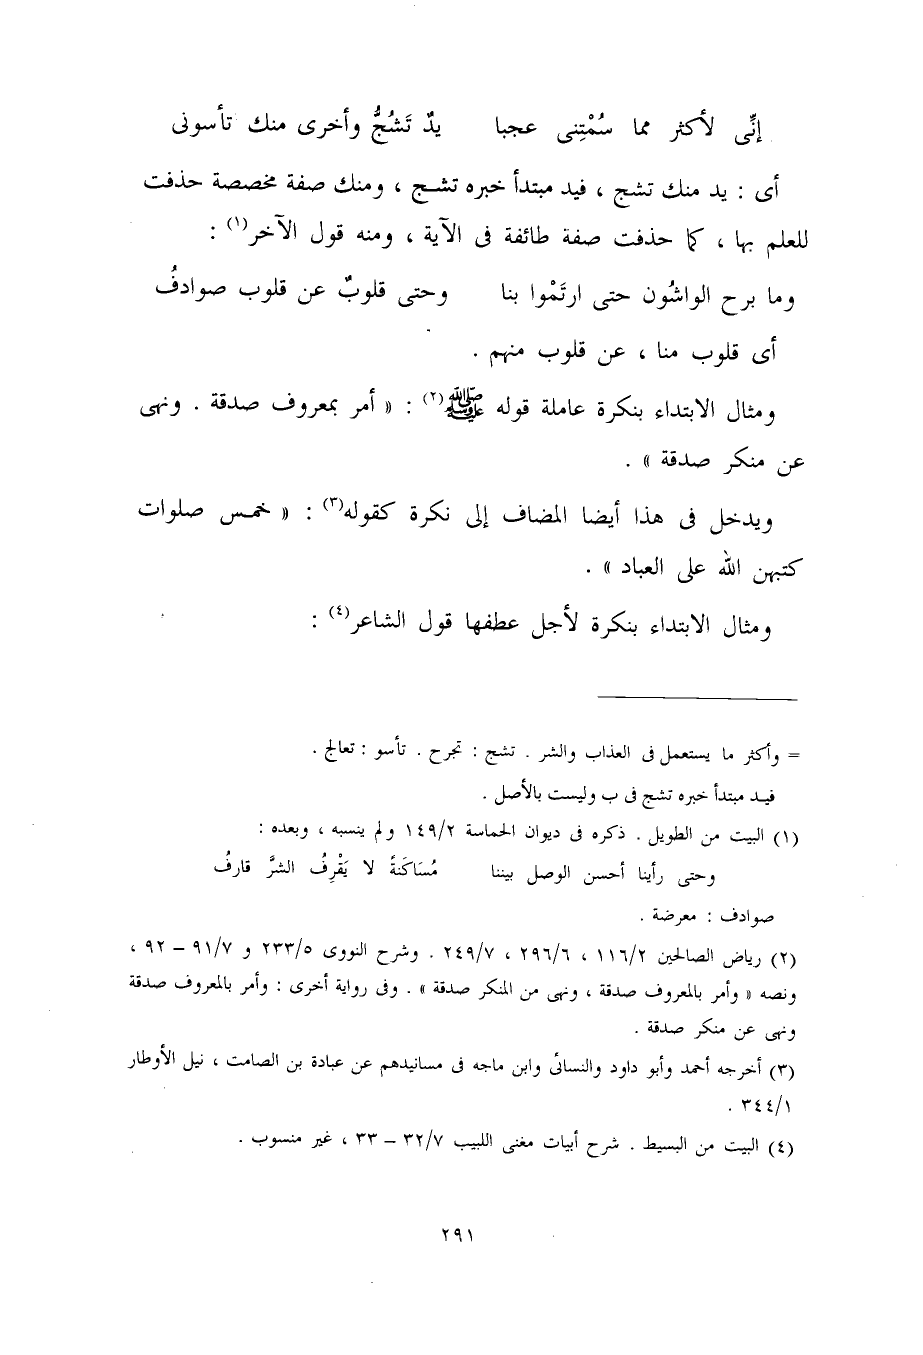 إنِّى لأكثر مما سُمْتِنى عجبا    يدٌ تَشُجُّ وأخرى منك تأسونى
أى : يد منك تشج ، فيد مبتدأ خبره تشج ، ومنك صفة مخصصة حذفت
للعلم بها ، كما حذفت صفة طائفة فى الآية ، ومنه قول الآخر(١) :
وما برح الواشُون حتى ارتَمْوا بنا    وحتى قلوبٌ عن قلوب صوادفُ
أى قلوب منا ، عن قلوب منهم .
ومثال الابتداء بنكرة عاملة قوله ﷺ(٢) : « أمر بمعروف صدقة . ونهى
عن منكر صدقة » .
ويدخل فى هذا أيضا المضاف إلى نكرة كقوله(٣) : « خمس صلوات
كتبهن الله على العباد » .
ومثال الابتداء بنكرة لأجل عطفها قول الشاعر(٤) :
= وأكثر ما يستعمل فى العذاب والشر . تشج : تجرح . تأسو : تعالج .
فيد مبتدأ خبره تشج فى ب وليست بالأصل .
(١) البيت من الطويل . ذكره فى ديوان الحماسة ١٤٩/٢ ولم ينسبه ، وبعده :
وحتى رأينا أحسن الوصل بيننا    مُسَاكَنةً لا يَقْرِفُ الشرَّ قارفُ
صوادف : معرضة .
(٢) رياض الصالحين ١١٦/٢ ، ٢٩٦/٦ ، ٢٤٩/٧ . وشرح النووى ٢٣٣/٥ و ٩١/٧ – ٩٢ ،
ونصه « وأمر بالمعروف صدقة ، ونهى من المنكر صدقة » . وفى رواية أخرى : وأمر بالمعروف صدقة
ونهى عن منكر صدقة .
(٣) أخرجه أحمد وأبو داود والنسائى وابن ماجه فى مسانيدهم عن عبادة بن الصامت ، نيل الأوطار
٣٤٤/١ .
(٤) البيت من البسيط . شرح أبيات مغنى اللبيب ٣٢/٧ – ٣٣ ، غير منسوب .
٢٩١